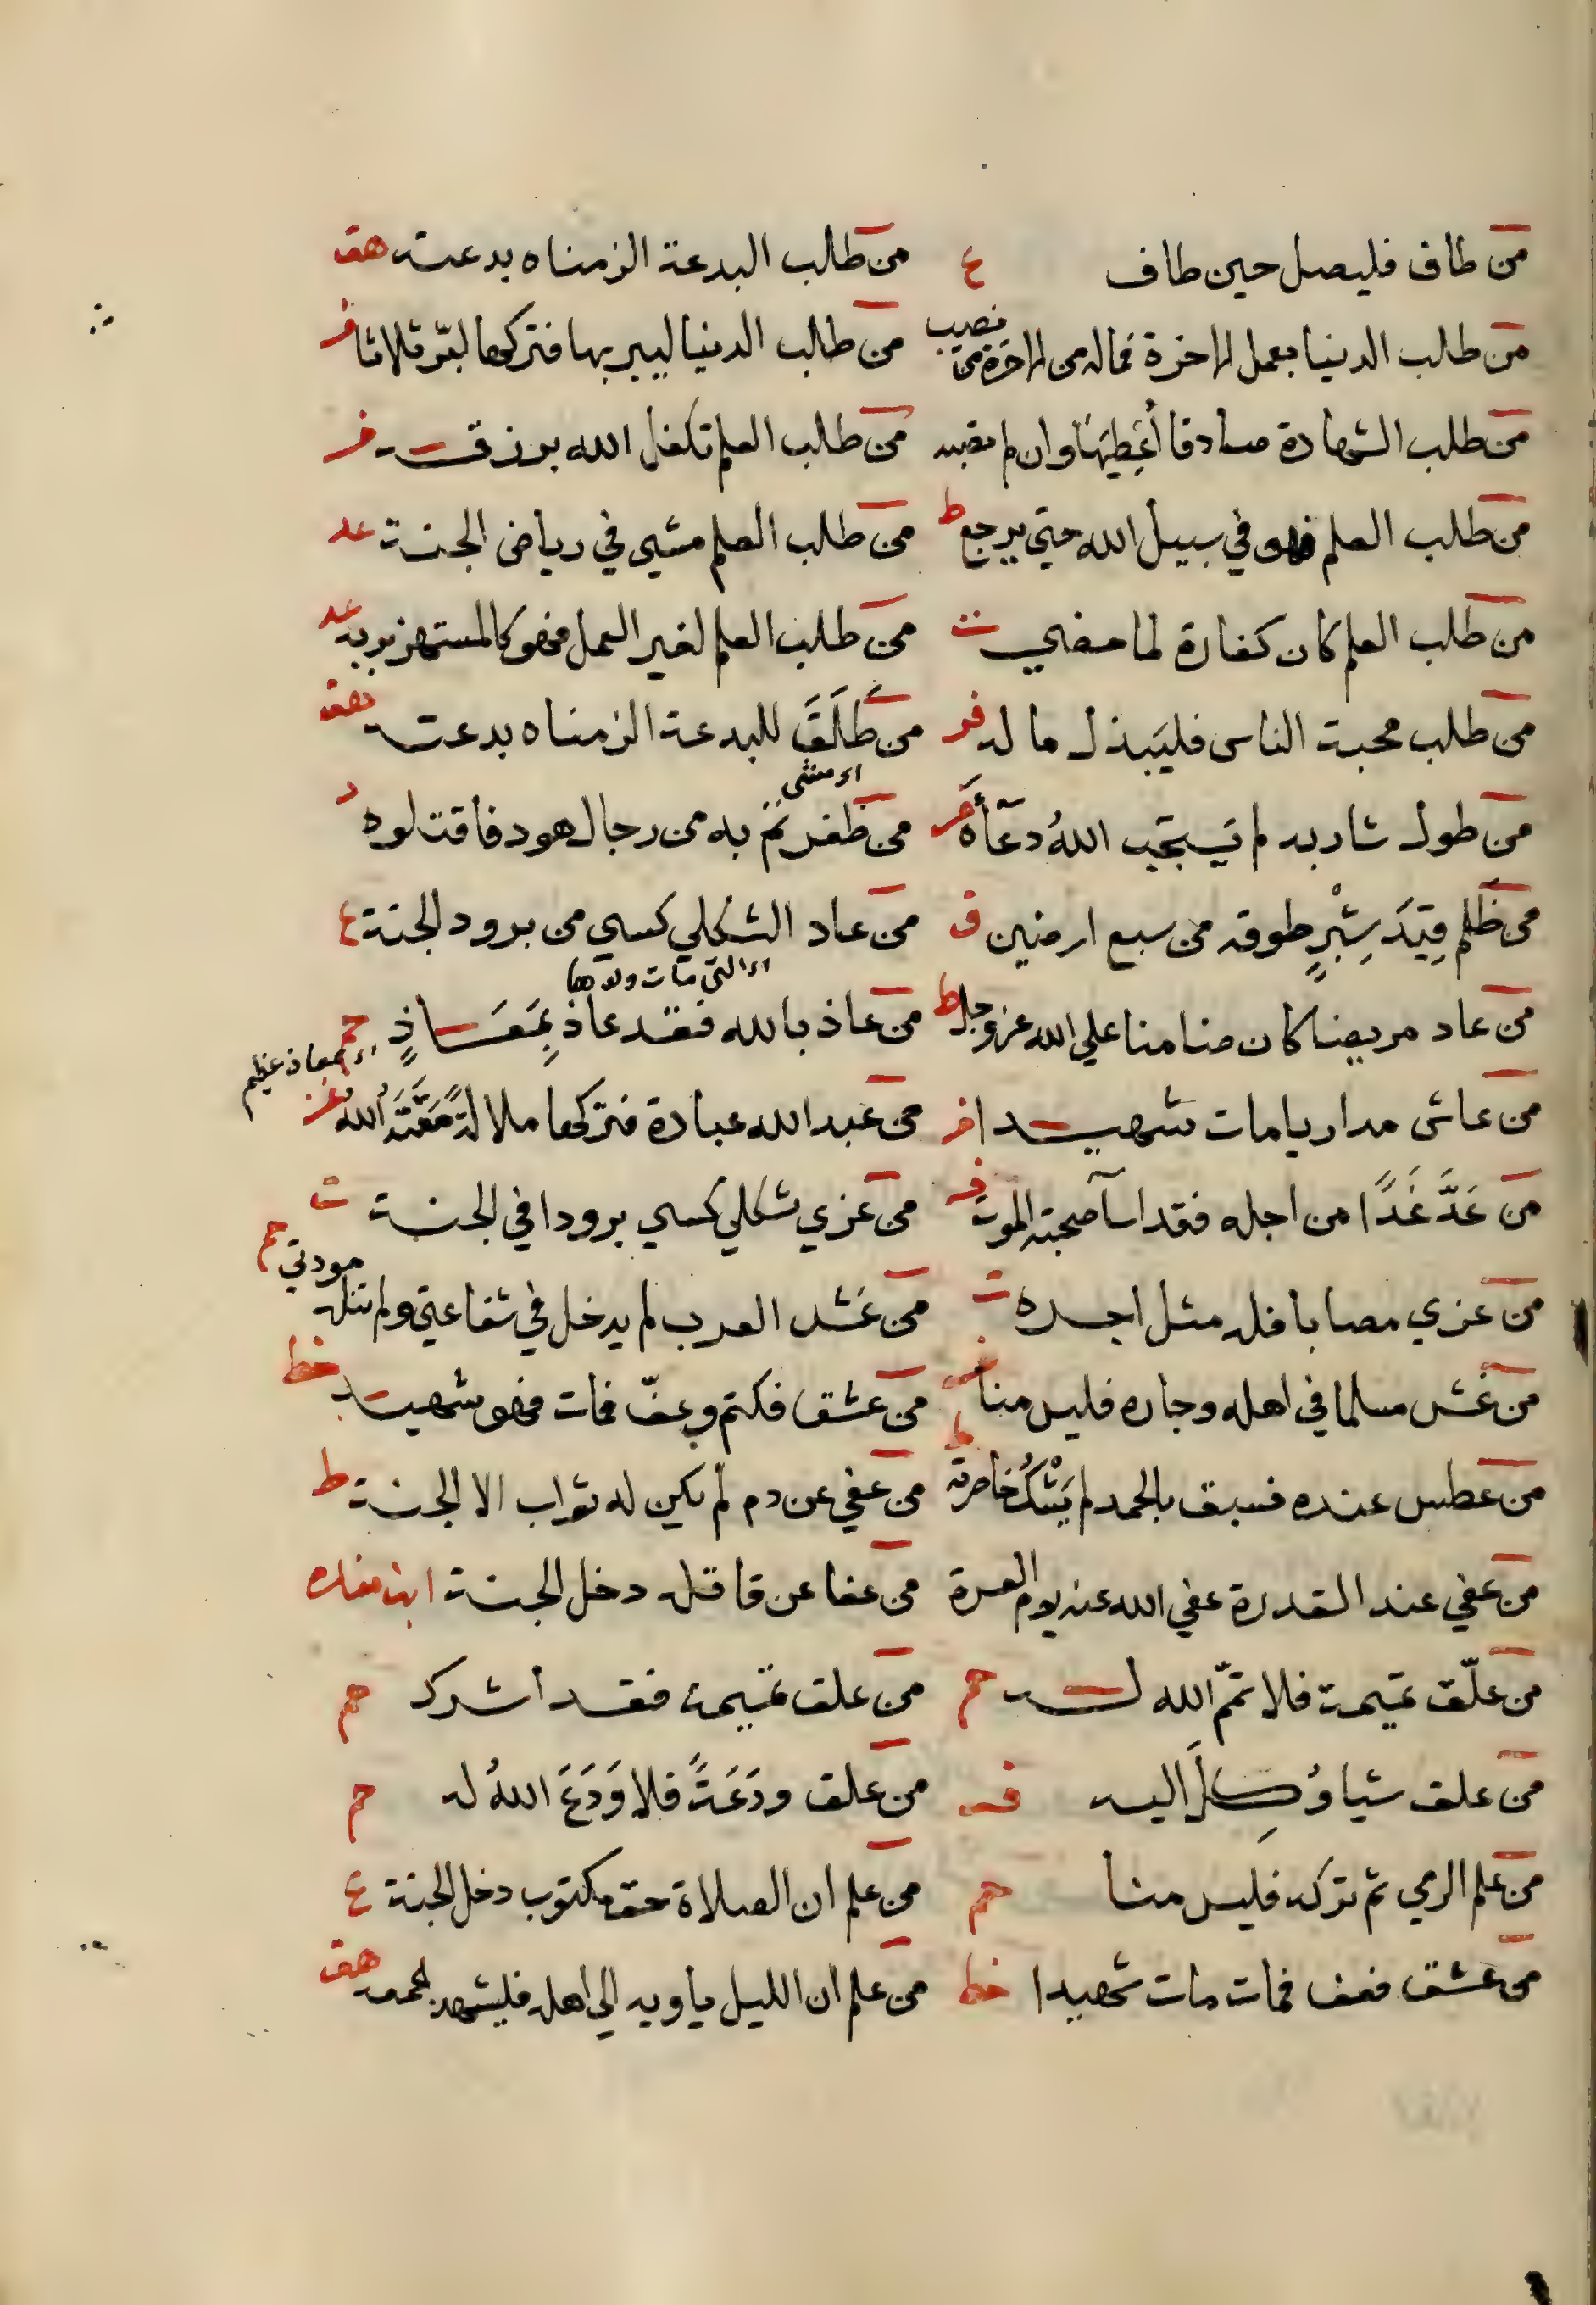 من طاف فليصل حين طاف ع من طالب البدعة الزمناه بدعته هق
من طالب الدنيا بعمل الاخرة فماله من الاخرة من نصيب من طالب الدنيا ليبر بها فتركها لبر ثلاثا فر
من طلب الشهادة صادقا أُعْطِيَهَا وان لم تصبه من طلب العلم تكفل الله برزقه فر
من طلب العلم فهو في سبيل الله حتي يرجع ط من طلب العلم مشي في رياض الجنة عد
من طلب العلم كان كفارة لما مضي ت من طلب العلم لغير العمل فهو كالمستهزء بربه عد
من طلب محبة الناس فليبذل ماله فر من طَلَقَ للبدعة الزمناه بدعته هق
من طول شاربه لم يستجب اللهُ دعآأه من ظفرتم به من رجال هود فاقتلوه د
من ظلم قِيَدَ شِبْرٍ طوقه من سبع ارضين ق من عاد الثكلي كسي من برود الجنة ع
اي التي مات ولدها
من عاد مريضا كان ضامنا علي الله عز وجل ط من عاذ بالله فقد عاذ بِمَعَاذٍ حم
اي بمعاذ عظيم
من عاش مداريا مات شهيدا فر من عبد الله عبادة فتركها ملالةً مَقَتَهُ اللهُ
من عَدَّ غَدًا من اجله فقد اسآ صحبة الموت فر من عزي ثكلي كسي برودا في الجنة ت
من عزي مصابا فله مثل اجره ت من غش العرب لم يدخل في شفاعتي ولم تنله مودتي حم
من غش مسلما في اهله وجاره فليس منا من عشق فكتم وعفّ فمات فهو شهيد خط
من عطس عنده فسبق بالحمد لم يَشْكُ خاصرته من عفي عن دم لم يكن له ثواب الا الجنة ط
من عفي عند القدرة عفي الله عنه يوم العسرة من عفا عن قاتله دخل الجنة ابن منده
من علّق تميمة فلا تمّ الله له حم من علق تميمة فقد اشرك حم
من علق شيا وُكِلَ اليه من علق ودَعَةً فلا وَدَعَ اللهُ له حم
من علم الرمي ثم تركه فليس منا حم من علم ان الصلاة حق مكتوب دخل الجنة ع
من عشق فعف فمات مات شهيدا خط من علم ان الليل ياويه الي اهله فليشهد الجمعة هق